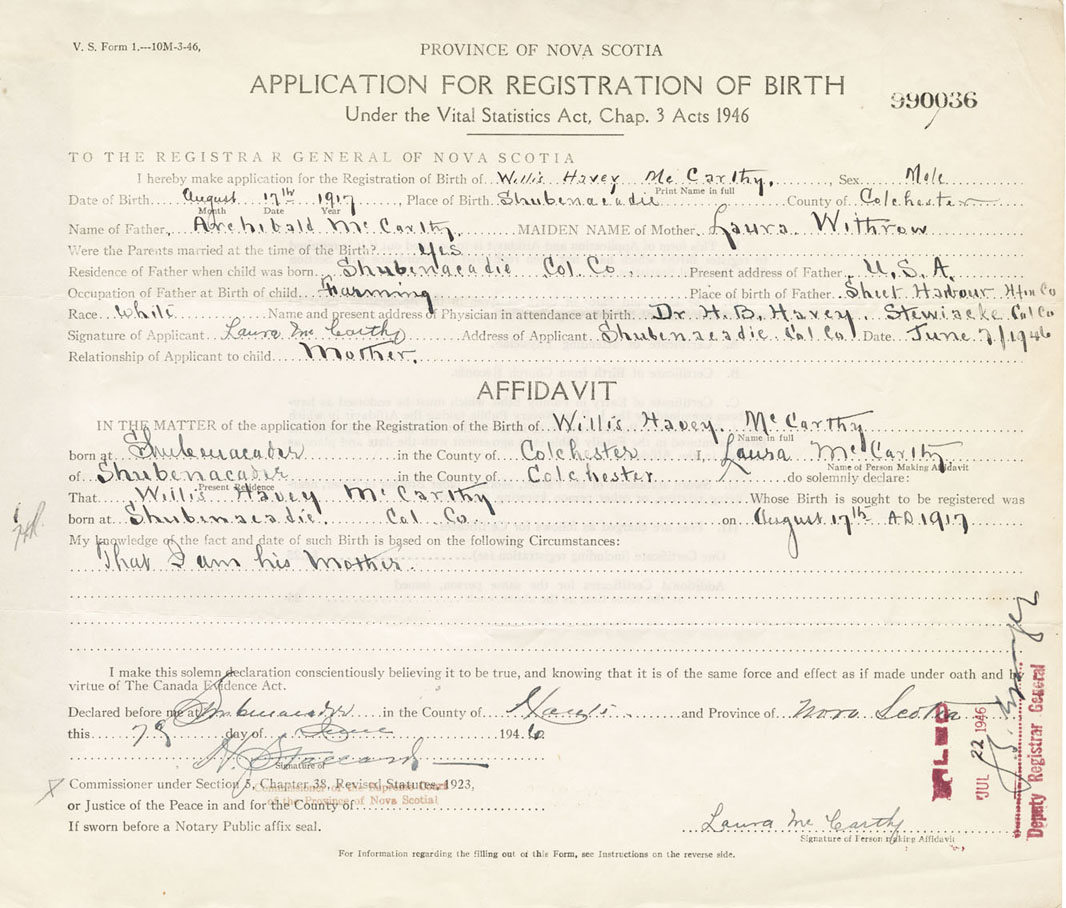 V. S. Form 1.---10M-3-46,
PROVINCE OF NOVA SCOTIA
APPLICATION FOR REGISTRATION OF BIRTH
990036
Under the Vital Statistics Act, Chap. 3 Acts 1946
TO THE REGISTRAR GENERAL OF NOVA SCOTIA
I hereby make application for the Registration of Birth of Willis Havey McCarthy, Sex Male
Print Name in full
Date of Birth August 17th 1917, Place of Birth Shubenacadie County of Colchester
Month Date Year
Name of Father, Archibald McCarthy. MAIDEN NAME of Mother Laura Withrow
Were the Parents married at the time of the Birth? Yes
Residence of Father when child was born Shubenacadie Col. Co. Present address of Father U.S.A.
Occupation of Father at Birth of child Farming Place of birth of Father Sheet Harbour Hfx Co
Race White Name and present address of Physician in attendance at birth Dr. H. B. Havey. Stewiacke Col Co
Signature of Applicant Laura McCarthy Address of Applicant Shubenacadie Col. Co. Date June 7/1946
Relationship of Applicant to child Mother.
AFFIDAVIT
IN THE MATTER of the application for the Registration of the Birth of Willis Havey McCarthy
Name in full
born at Shubenacadie in the County of Colchester I, Laura McCarthy
Name of Person Making Affidavit
of Shubenacadie in the County of Colchester do solemnly declare:
Present Residence
That Willis Havey McCarthy Whose Birth is sought to be registered was
born at Shubenacadie. Col. Co. on August 17th A.D. 1917
My knowledge of the fact and date of such Birth is based on the following Circumstances:
That I am his Mother.
I make this solemn declaration conscientiously believing it to be true, and knowing that it is of the same force and effect as if made under oath and by
virtue of The Canada Evidence Act.
Declared before me at Shubenacadie in the County of Hants and Province of Nova Scotia
this day of June 1946
Signature of
Commissioner under Section 5, Chapter 38, Revised Statutes, 1923,
Commissioner of the Supreme Court
of the Province of Nova Scotia
or Justice of the Peace in and for the County of
If sworn before a Notary Public affix seal.
Laura McCarthy
Signature of Person making Affidavit
For Information regarding the filling out of this Form, see Instructions on the reverse side.
FILED
JUL 22 1946
Deputy Registrar General